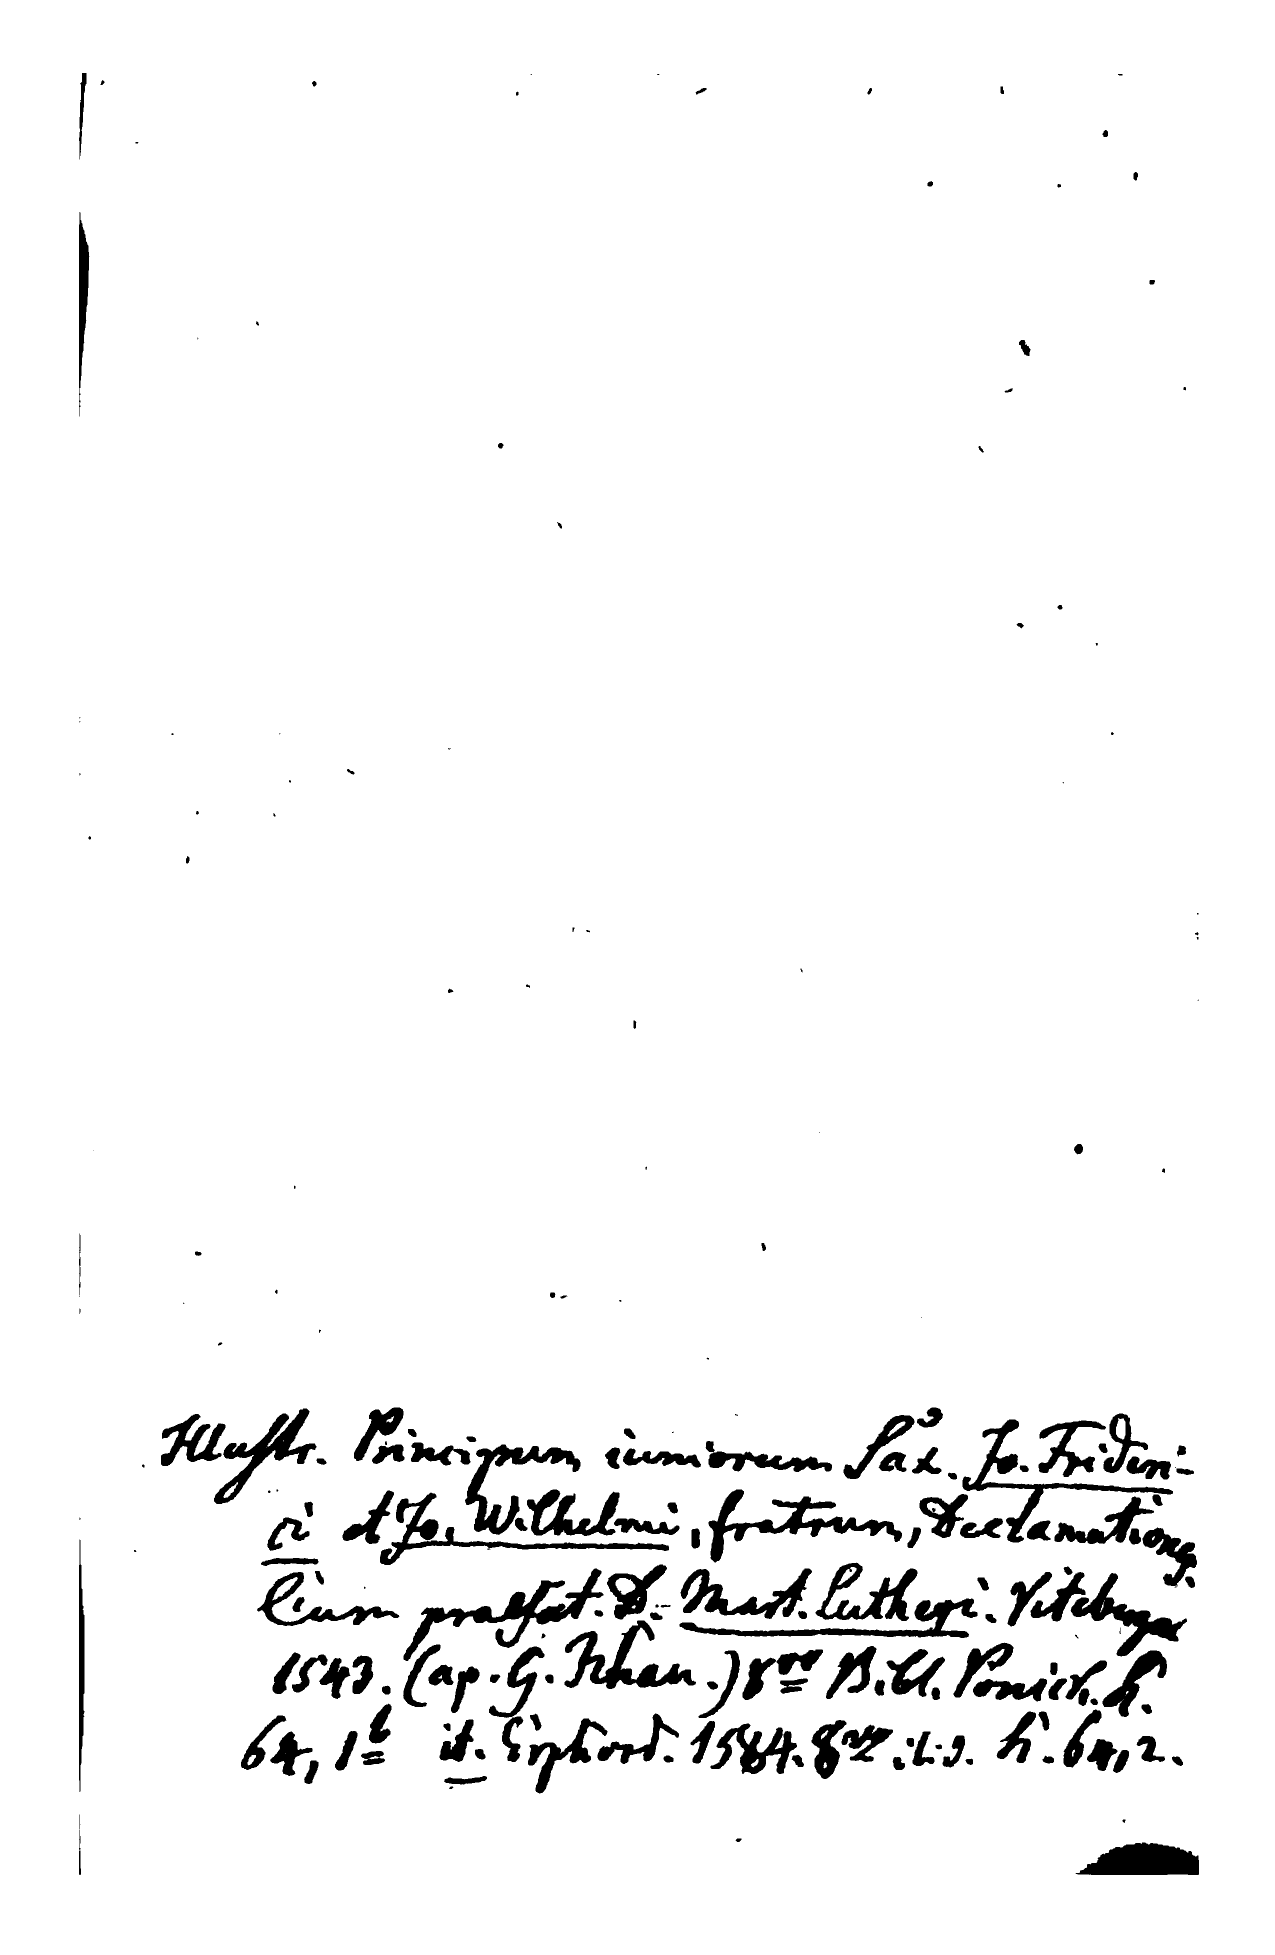 Illustr. Principum iuniorum Sax. Jo. Frideri-
ci et Jo. Wilhelmi, fratrum, Declamationes.
cum praefat. D. Mart. Lutheri. Vitebergae
1543. (ap. G. Rhau.) 8vo B. U. Ponick. h.
64, 1b it. Erphord. 1584. 8vo h. 64, 2.